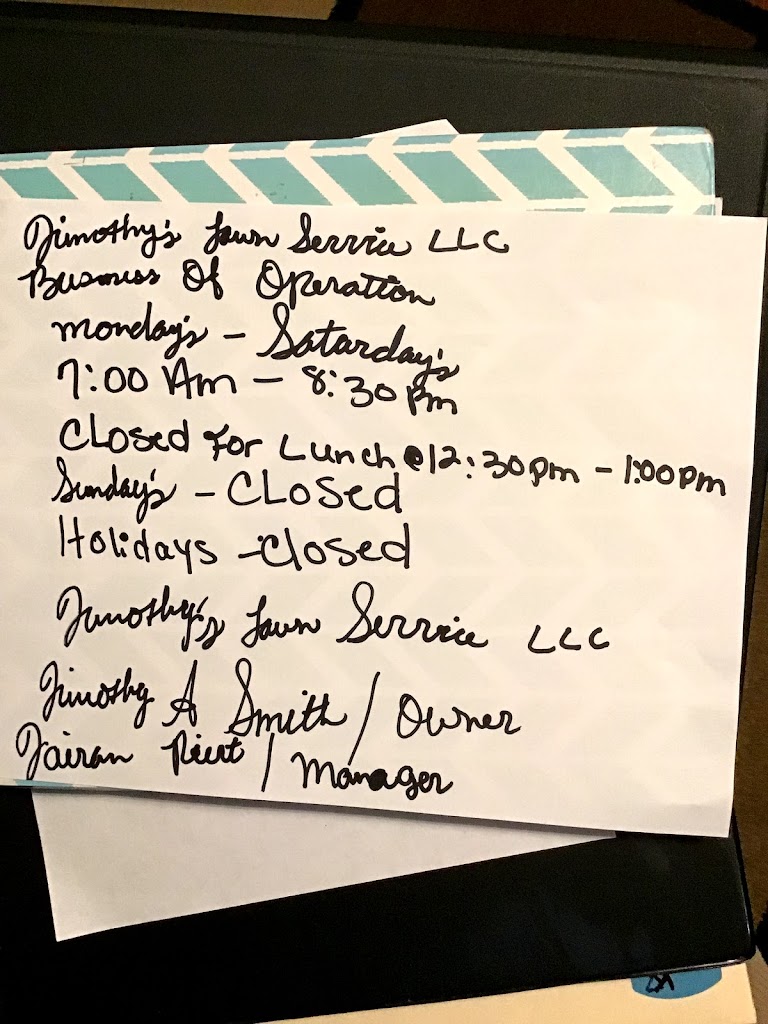 Timothy's Lawn Service LLC
Business Of Operation
Monday's - Saturday's
7:00 Am - 8:30 pm
Closed For Lunch @ 12:30pm - 1:00pm
Sunday's - Closed
Holidays - Closed
Timothy's Lawn Service LLC
Timothy A Smith / Owner
/ Manager